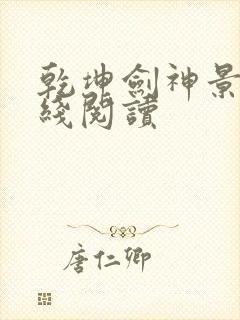 乾坤劍神景
綫閱讀
唐仁卿